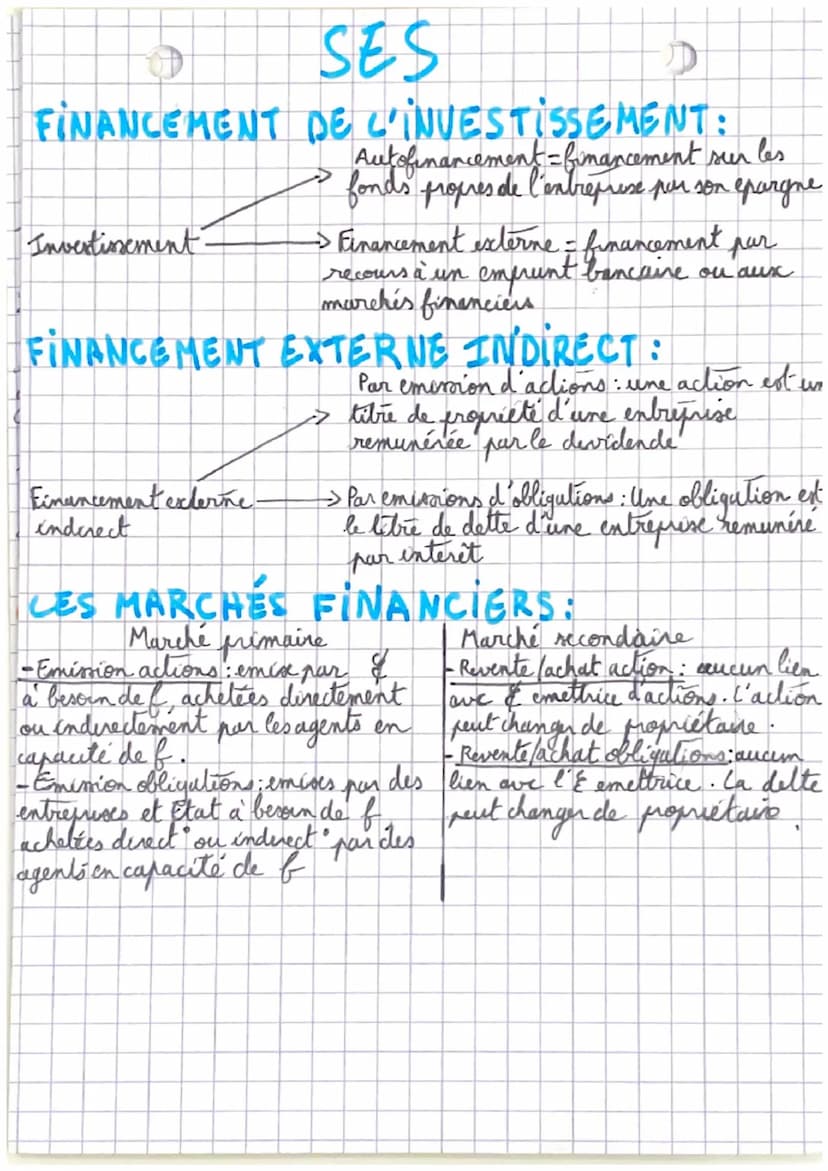 SES
FINANCEMENT DE L'INVESTISSEMENT :
Autofinancement = financement sur les
fonds propres de l'entreprise par son epargne
Investissement
Financement externe = financement par
recours à un emprunt bancaire ou aux
marchés financiers
FINANCEMENT EXTERNE INDIRECT :
Par emission d'actions : une action est un
titre de propriété d'une entreprise
remunérée par le dividende
Financement externe
indirect
Par emissions d'obligations : Une obligation est
le titre de dette d'une entreprise remunéré
par interêt
LES MARCHÉS FINANCIERS :
Marché primaire
- Emission actions : emise par E
à besoin de f, achetées directement
ou indirectement par les agents en
capacité de f.
- Emission obligations : emises par des
entreprises et Etat à besoin de f
achetées direct° ou indirect° par des
agents en capacité de f
Marché secondaire
- Revente/achat action : aucun lien
avc E emettrice d'actions. L'action
peut changer de propriétaire.
- Revente/achat obligations : aucun
lien avc l'E emettrice. La dette
peut changer de propriétaire.